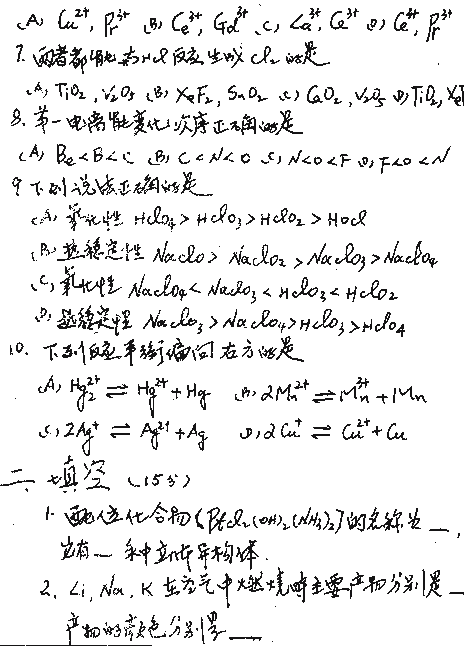 (A) Cu²⁺, Pr³⁺ (B) Ce³⁺, Gd³⁺ (C) La³⁺, Ce³⁺ (D) Ce³⁺, Pr³⁺
7. 两者都能与HCl反应生成Cl₂的是
(A) TiO₂, V₂O₅ (B) XeF₂, SnO₂ (C) CaO₂, V₂O₅ (D) TiO₂, XeF
8. 第一电离能变化次序正确的是
(A) Be<B<C (B) C<N<O (C) N<O<F (D) F<O<N
9 下列说法正确的是
(A) 氧化性 HClO₄>HClO₃>HClO₂>HOCl
(B) 热稳定性 NaClO>NaClO₂>NaClO₃>NaClO₄
(C) 氧化性 NaClO₄<NaClO₃<HClO₃<HClO₂
(D) 热稳定性 NaClO₃>NaClO₄>HClO₃>HClO₄
10. 下列反应平衡偏向右方的是
(A) Hg₂²⁺ ⇌ Hg²⁺+Hg (B) 2Mn²⁺ ⇌ Mn³⁺+Mn
(C) 2Ag⁺ ⇌ Ag²⁺+Ag (D) 2Cu⁺ ⇌ Cu²⁺+Cu
二 填空 (15分)
1. 配位化合物[PtCl₂(OH)₂(NH₃)₂]的名称为__,
它有__种立体异构体.
2. Li, Na, K 在空气中燃烧时主要产物分别是__
产物的颜色分别是__